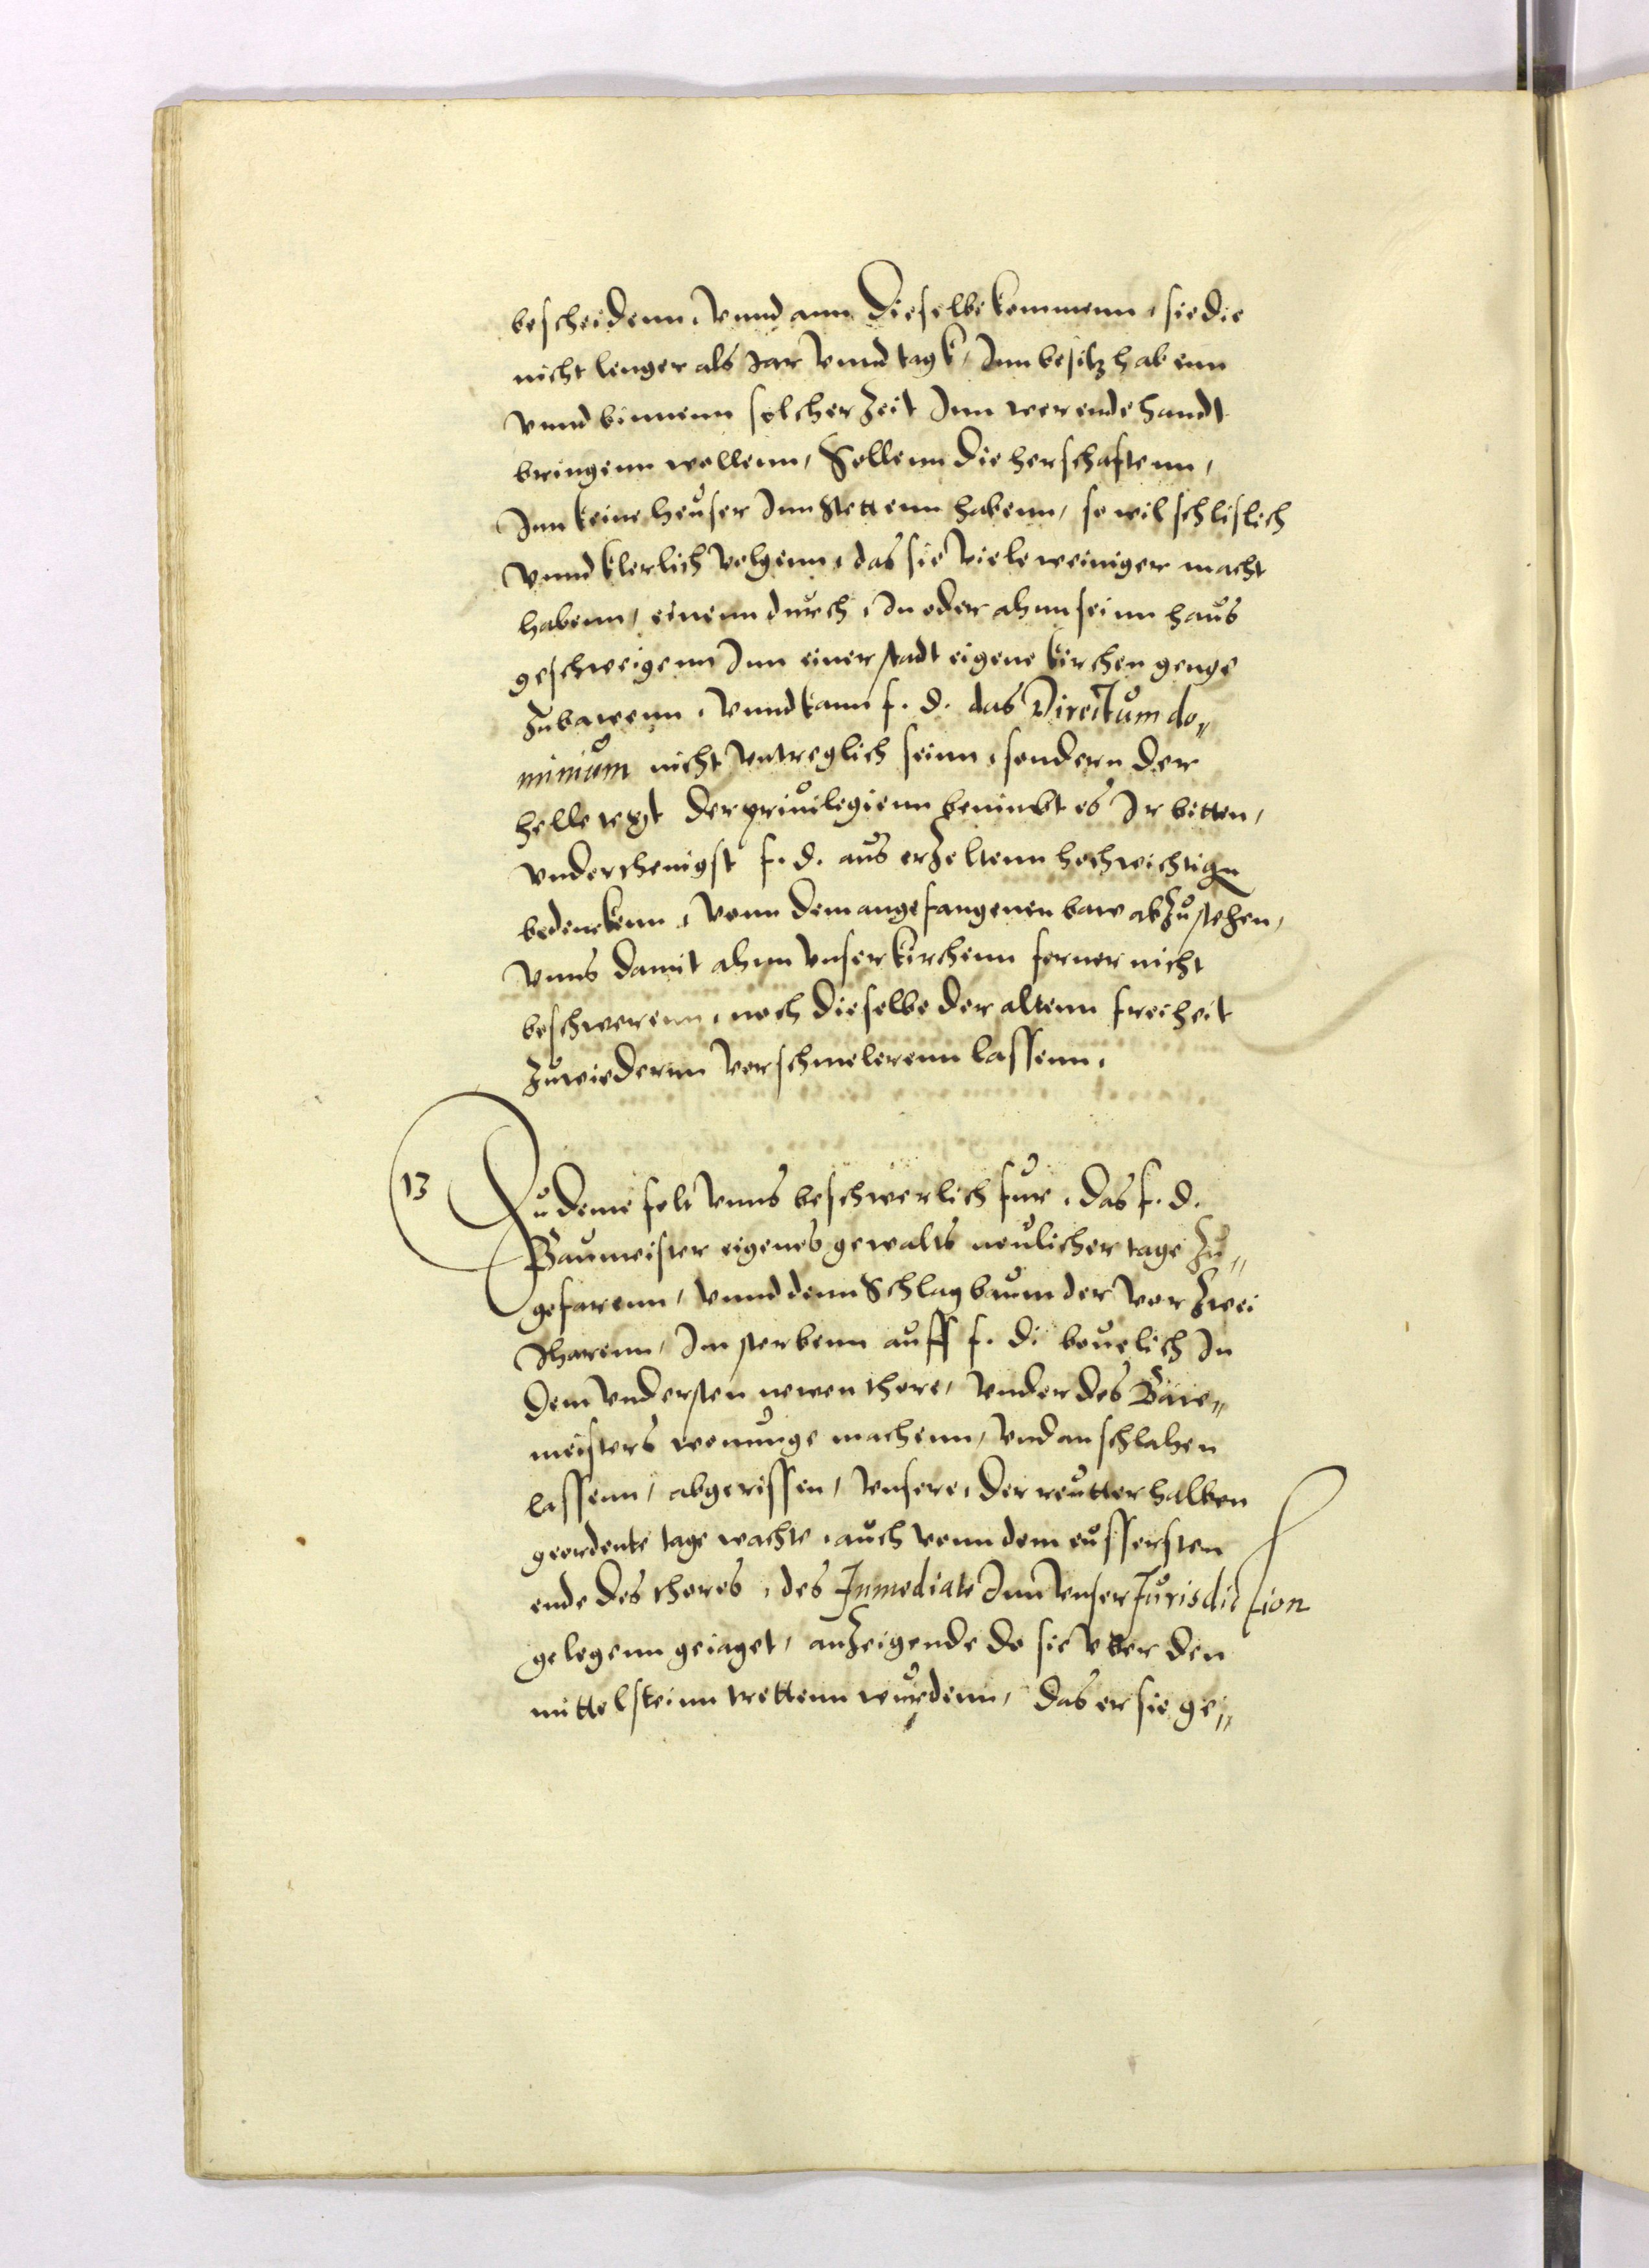 bescheidenn, vnnd ann dieselbe kommenn, sie die
nicht lenger als Jar vnnd tagk, Inn besitz habenn
vnnd binnenn solcher Zeit Inn werende handt
bringenn wollenn, Sollenn die herschaftenn,
Inn keine heuser Inn Stettenn habenn, so wil schlislich
vnnd klerlich volgenn, das sie viele weiniger macht
habenn, einenn durch, In oder ahnn sein haus
geschweigenn Inn einer stadt eigene kirchen genge
Zubawenn, vnnd kann f. d. das Directum do„
minium nicht vntreglich seinn, sondern der
helle text der priuilegienn benimbt es Ir bitten,
vnderthenigst f. d. aus erzeltenn hochwichtign
bedenckenn, vonn dem angefangenen baw abzustehen,
vnns damit ahnn vnser kirchenn ferner nicht
beschwerenn, noch dieselbe der altenn freiheit
Zuwiedernn verschmelerenn lassenn.
13 Zudeme felt vnns beschwerlich fur, das f. d.
Baumeister eigenes gewalts neulicher tage Zu„
gefarenn, vnnd denn Schlagbaum der vor Zwei
Jharenn, Im sterbenn auff f. d. beuelich In
dem vndersten newen thore, vnder des Baw„
meisters wonunge machenn, vnd anschlahen
lassenn, abgerissen, vnsere, der reutter halben
geordente tage wachte, auch vonn dem eussersten
ende des thores, des Immediate Inn vnser Jurisdiction
gelegenn geiaget, anzeigende do sie vber den
mittelsteinn trettenn wurdenn, das er sie ge„